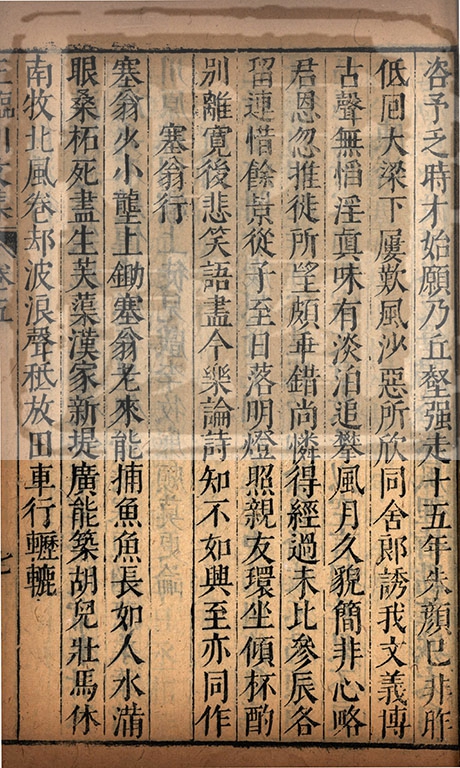 咨予乏時才始願乃丘壑强走十五年朱顔已非昨
低囘大梁下屢歎風沙惡所欣同舍郎誘我文義博
古聲無慆淫眞味有淡泊追攀風月久貌簡非心略
君恩忽推徙所望頗乖錯尚憐得經過未比參辰各
留連惜餘景從子至日落明燈照親友環坐傾杯酌
别離寛後悲笑語盡今樂論詩知不如興至亦同作
塞翁行
塞翁少小壟上鋤塞翁老來能捕魚魚長如人水滿
眼桑柘死盡生芙蕖漢家新堤廣能築胡兒壯馬休
南牧北風卷却波浪聲秪放田車行轣轆
王臨川文集
卷五
七